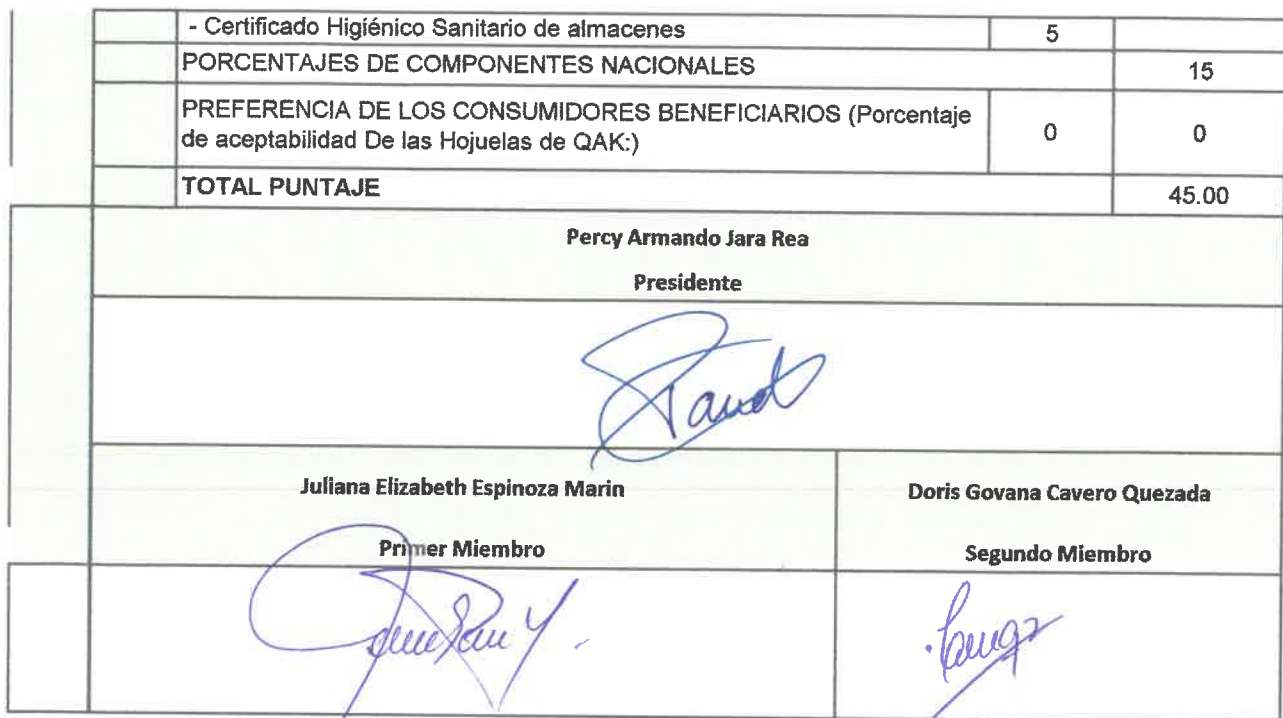 - Certificado Higiénico Sanitario de almacenes 5
PORCENTAJES DE COMPONENTES NACIONALES 15
PREFERENCIA DE LOS CONSUMIDORES BENEFICIARIOS (Porcentaje
de aceptabilidad De las Hojuelas de QAK:) 0 0
TOTAL PUNTAJE 45.00
Percy Armando Jara Rea
Presidente
Juliana Elizabeth Espinoza Marin
Primer Miembro
Doris Govana Cavero Quezada
Segundo Miembro